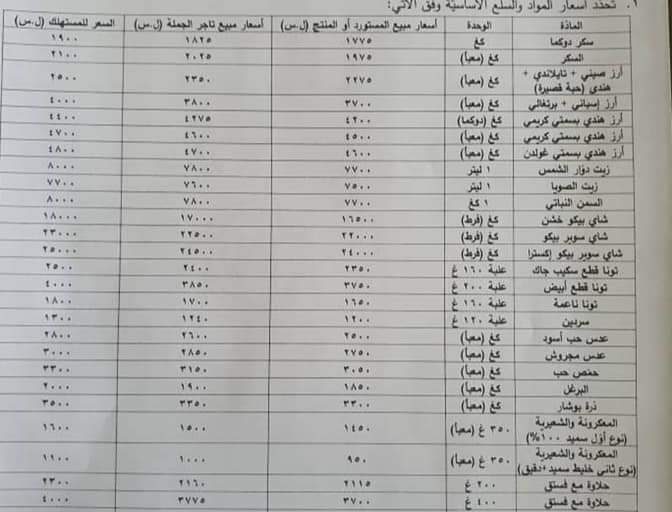 ١. تحدد أسعار المواد والسلع الأساسية وفق الآتي:
المادة | الوحدة | أسعار مبيع المستورد أو المنتج (ل.س) | أسعار مبيع تاجر الجملة (ل.س) | السعر للمستهلك (ل.س)
سكر دوكما | كغ | ١٧٧٥ | ١٨٢٥ | ١٩٠٠
السكر | كغ (معبأ) | ١٩٧٥ | ٢٠٢٥ | ٢١٠٠
أرز صيني + تايلاندي +
هندي (حبة قصيرة) | كغ (معبأ) | ٢٢٧٥ | ٢٣٥٠ | ٢٥٠٠
أرز إسباني + برتغالي | كغ (معبأ) | ٣٧٠٠ | ٣٨٠٠ | ٤٠٠٠
أرز هندي بسمتي كريمي | كغ (دوكما) | ٤٢٠٠ | ٤٢٧٥ | ٤٤٠٠
أرز هندي بسمتي كريمي | كغ (معبأ) | ٤٥٠٠ | ٤٦٠٠ | ٤٧٠٠
أرز هندي بسمتي غولدن | كغ (معبأ) | ٤٦٠٠ | ٤٧٠٠ | ٤٨٠٠
زيت دوّار الشمس | ١ ليتر | ٧٧٠٠ | ٧٨٠٠ | ٨٠٠٠
زيت الصويا | ١ ليتر | ٧٥٠٠ | ٧٦٠٠ | ٧٧٠٠
السمن النباتي | ١ كغ | ٧٧٠٠ | ٧٨٠٠ | ٨٠٠٠
شاي بيكو خشن | كغ (فرط) | ١٦٥٠٠ | ١٧٠٠٠ | ١٨٠٠٠
شاي سوبر بيكو | كغ (فرط) | ٢٢٠٠٠ | ٢٢٥٠٠ | ٢٣٠٠٠
شاي سوبر بيكو إكسترا | كغ (فرط) | ٢٤٠٠٠ | ٢٤٥٠٠ | ٢٥٠٠٠
تونا قطع سكيب جاك | علبة ١٦٠ غ | ٢٣٥٠ | ٢٤٠٠ | ٢٥٠٠
تونا قطع أبيض | علبة ٢٠٠ غ | ٣٧٥٠ | ٣٨٥٠ | ٤٠٠٠
تونا ناعمة | علبة ١٦٠ غ | ١٦٥٠ | ١٧٠٠ | ١٨٠٠
سردين | علبة ١٢٠ غ | ١٢٠٠ | ١٢٤٠ | ١٣٠٠
عدس حب أسود | كغ (معبأ) | ٢٥٠٠ | ٢٦٠٠ | ٢٨٠٠
عدس مجروش | كغ (معبأ) | ٢٧٥٠ | ٢٨٥٠ | ٣٠٠٠
حمّص حب | كغ (معبأ) | ٣٠٥٠ | ٣١٥٠ | ٣٣٠٠
البرغل | كغ (معبأ) | ١٨٥٠ | ١٩٠٠ | ٢٠٠٠
ذرة بوشار | كغ (معبأ) | ٣٣٠٠ | ٣٣٥٠ | ٣٥٠٠
المعكرونة والشعيرية
(نوع أوّل سميد ١٠٠%) | ٣٥٠ غ (معبأ) | ١٤٥٠ | ١٥٠٠ | ١٦٠٠
المعكرونة والشعيرية
(نوع ثاني خليط سميد+دقيق) | ٣٥٠ غ (معبأ) | ٩٥٠ | ١٠٠٠ | ١١٠٠
حلاوة مع فستق | ٢٠٠ غ | ٢١١٥ | ٢١٦٠ | ٢٣٠٠
حلاوة مع فستق | ٤٠٠ غ | ٣٧٠٠ | ٣٧٧٥ | ٤٠٠٠